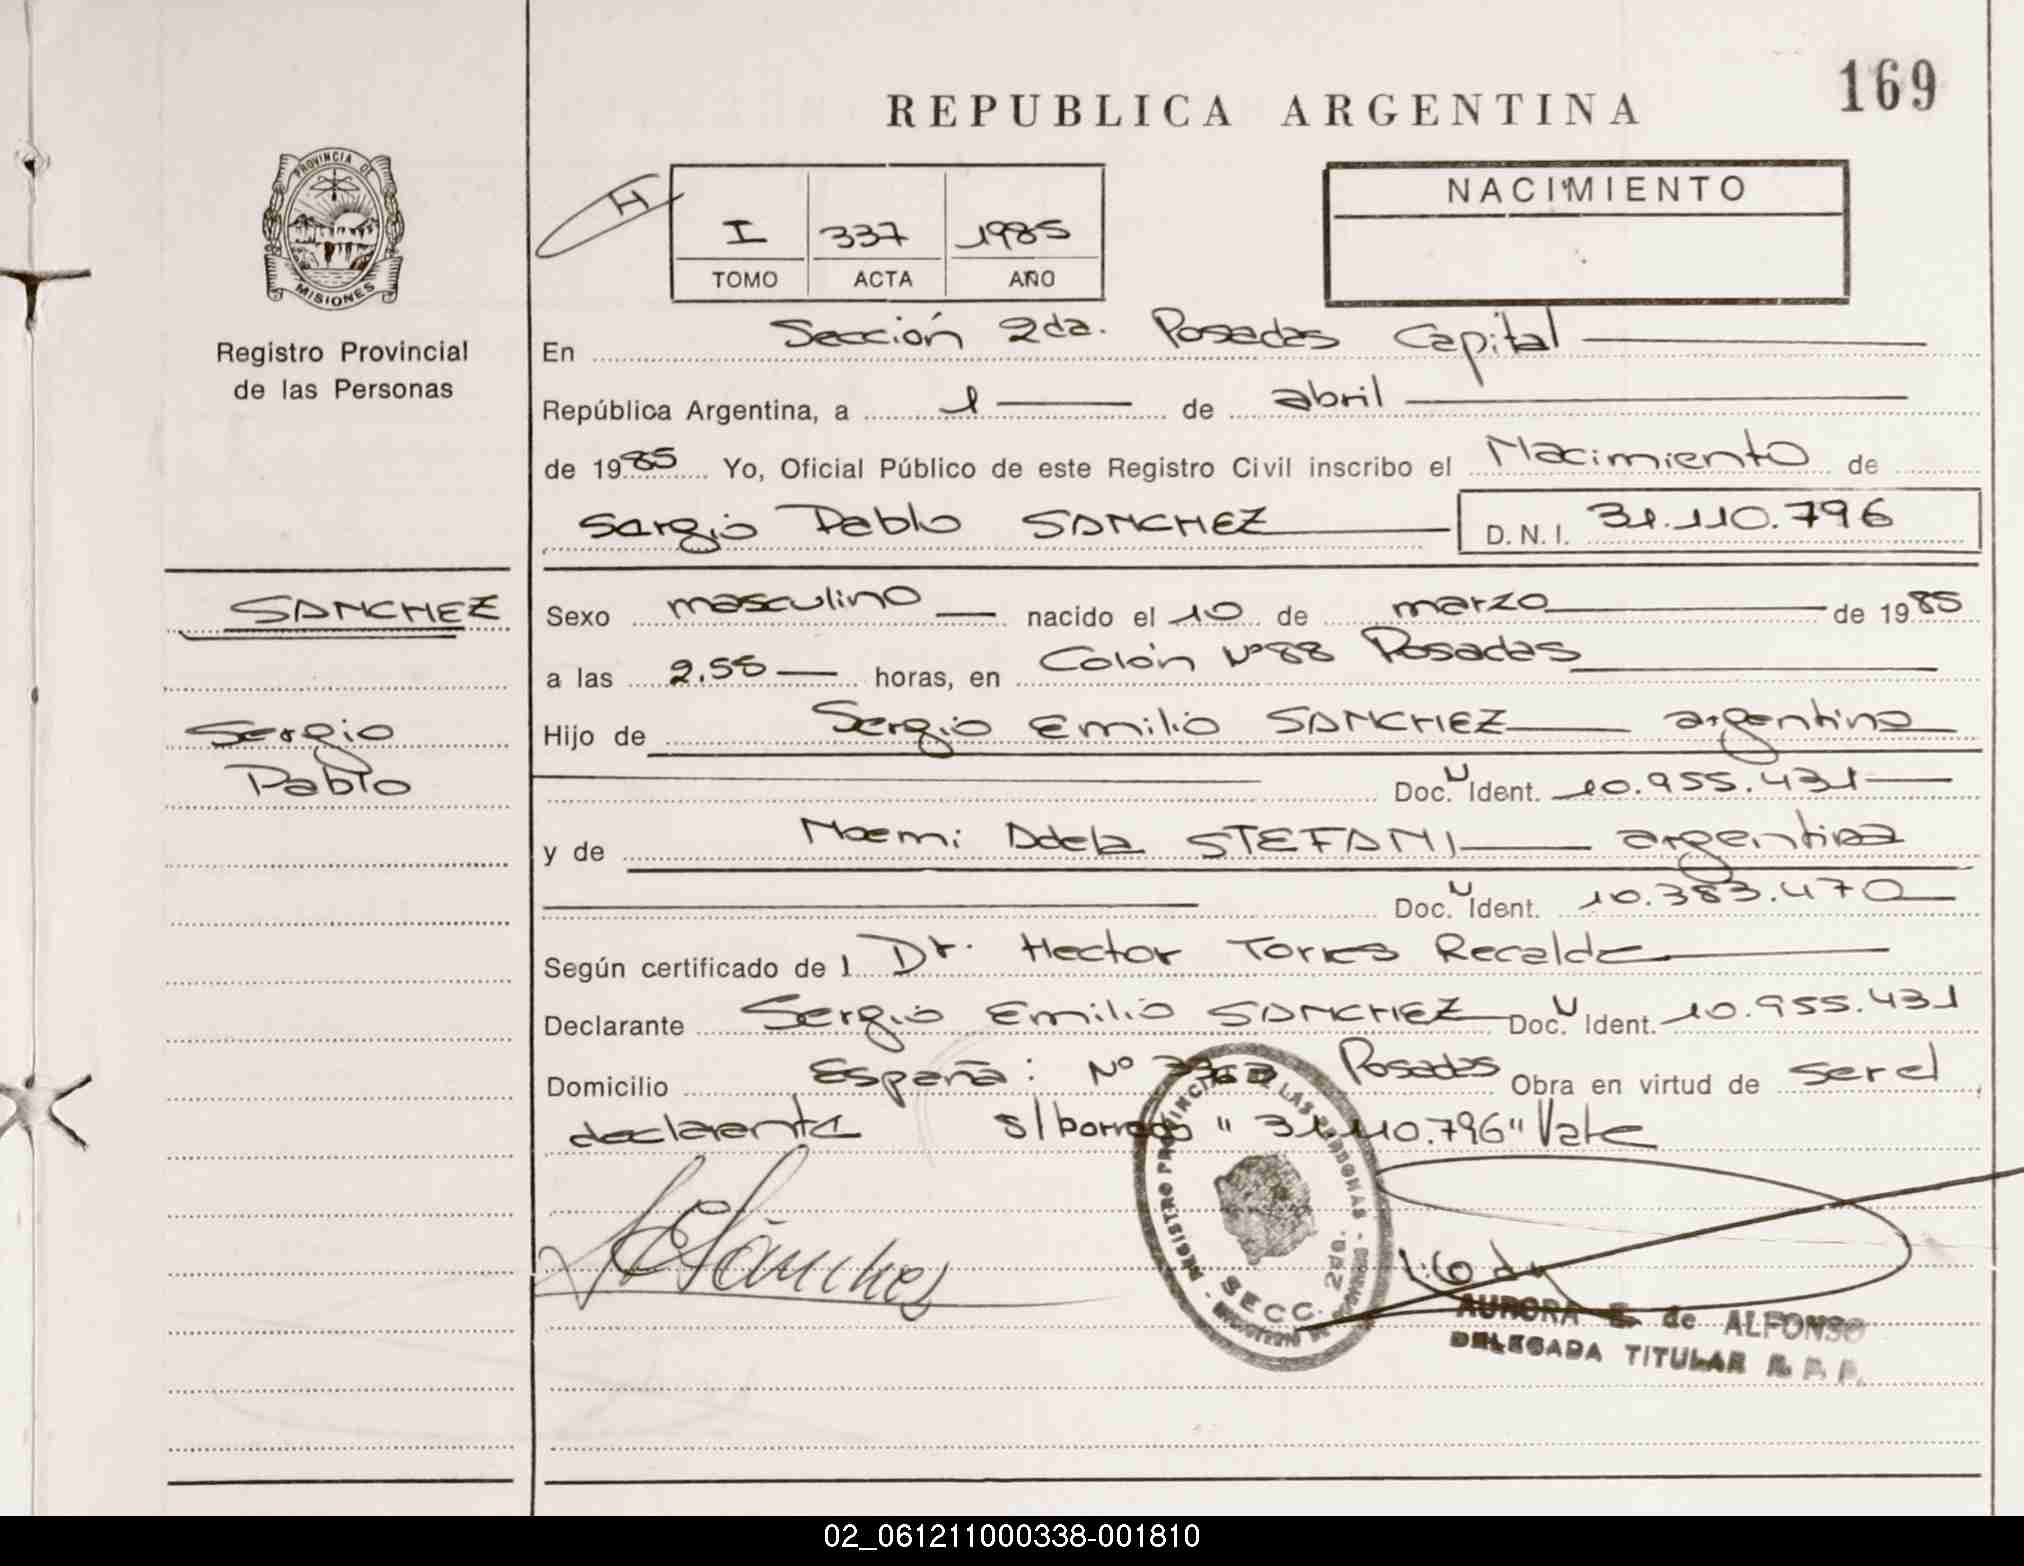 169
REPUBLICA ARGENTINA
PROVINCIA DE
MISIONES
Registro Provincial
de las Personas
H
I 337 1985
TOMO ACTA AÑO
NACIMIENTO
En Sección 2da. Posadas Capital
República Argentina, a 1 de abril
de 1985 Yo, Oficial Público de este Registro Civil inscribo el Nacimiento de
Sergio Pablo SANCHEZ D.N.I. 31.110.796
SANCHEZ
Sergio
Pablo
Sexo masculino nacido el 10 de marzo de 1985
a las 2.55 horas, en Colón Nº 88 Posadas
Hijo de Sergio Emilio SANCHEZ argentino
Doc. U Ident. 10.955.431
y de Noemi Adela STEFANI argentina
Doc. U Ident. 10.383.470
Según certificado de l Dr. Hector Torres Recalde
Declarante Sergio Emilio SANCHEZ Doc. U Ident. 10.955.431
Domicilio España: Nº Posadas Obra en virtud de ser el
declarante s/borrado "31.110.796" Vale
SESánchez
REGISTRO PROVINCIAL DE LAS PERSONAS
SECC. 2da.
AURORA E. de ALFONSO
DELEGADA TITULAR R. P. P.
02_061211000338-001810